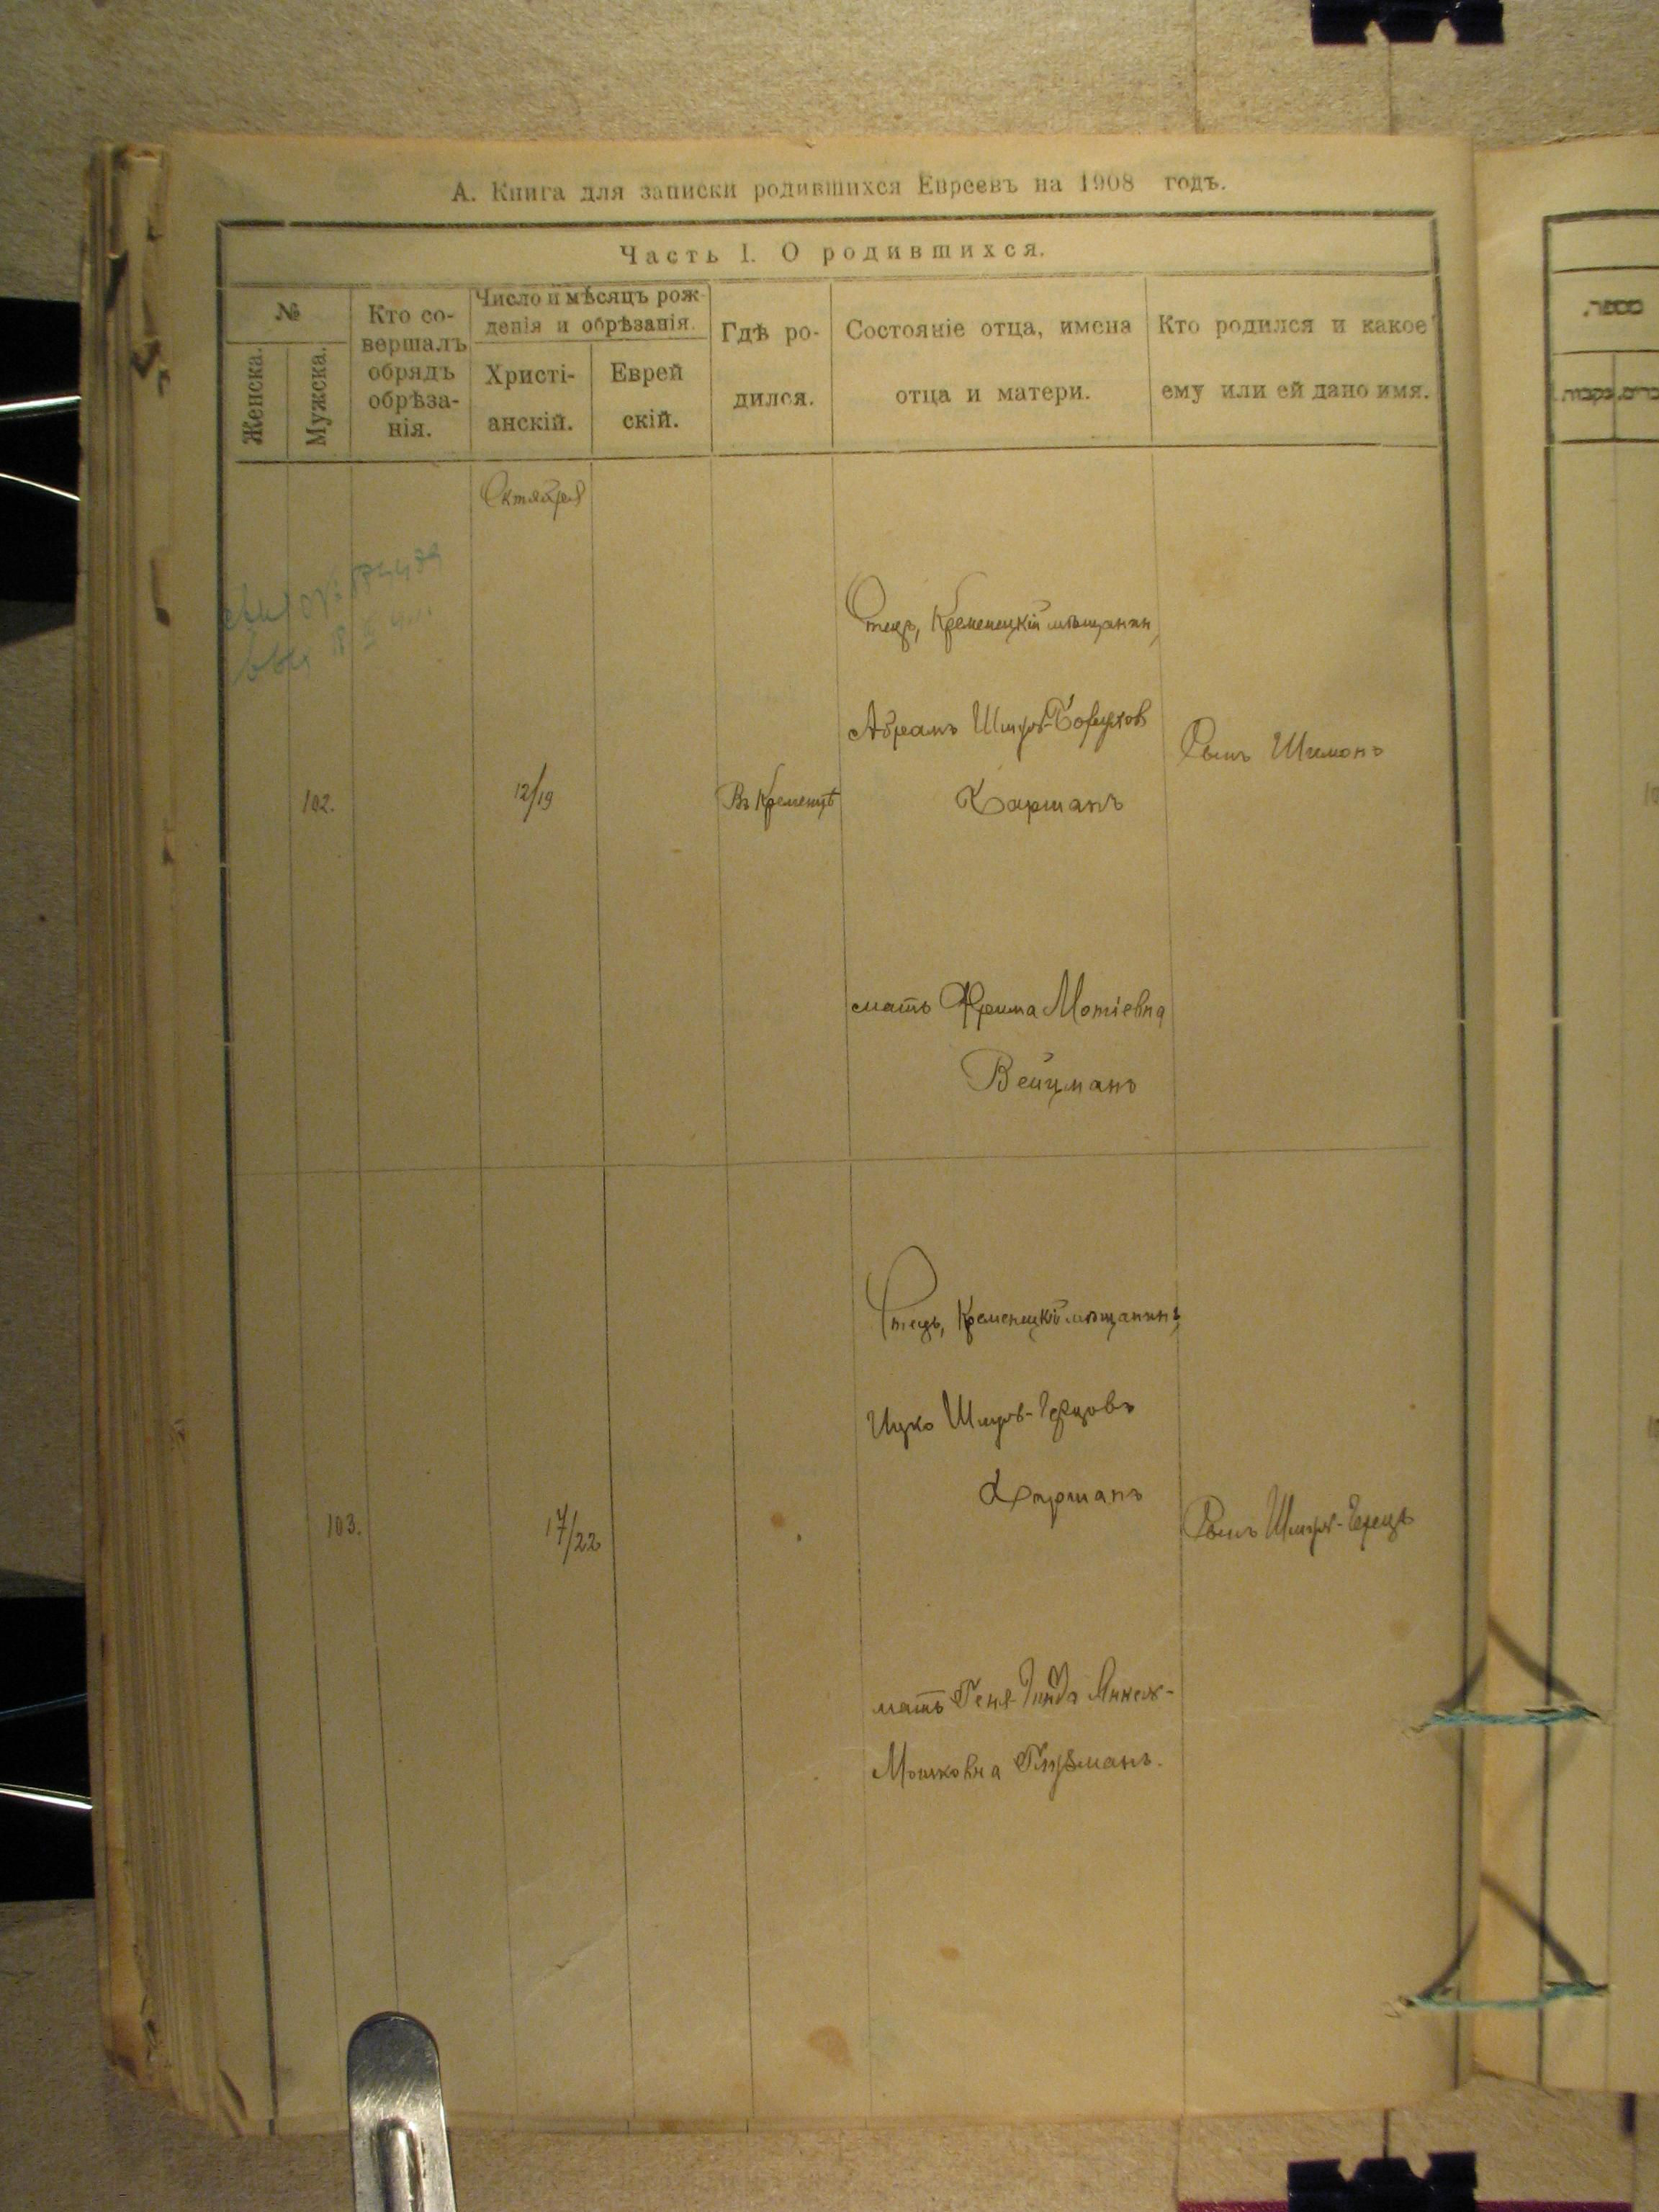 А. Книга для записки родившихся Евреевъ на 1908 годъ.
Часть I. О родившихся.
№
Женска.
Мужска.
Кто со-
вершалъ
обрядъ
обрѣза-
нія.
Число и мѣсяцъ рож-
денія и обрѣзанія.
Христі-
анскій.
Еврей
скій.
Гдѣ ро-
дился.
Состояніе отца, имена
отца и матери.
Кто родился и какое
ему или ей дано имя.
Октября
102.
12/19
Въ Кременцѣ
Отецъ, Кременецкій мѣщанин,
Абрамъ
Харманъ
мать Фрима Мотіевна
Вейцманъ
Сынъ Шимонъ
103.
17/22
Отецъ, Кременецкій мѣщанинъ,
Ицко Шмуль-Герцовъ
Харманъ
мать Геня-
Мошковна
Сынъ Шмуль-Герцъ